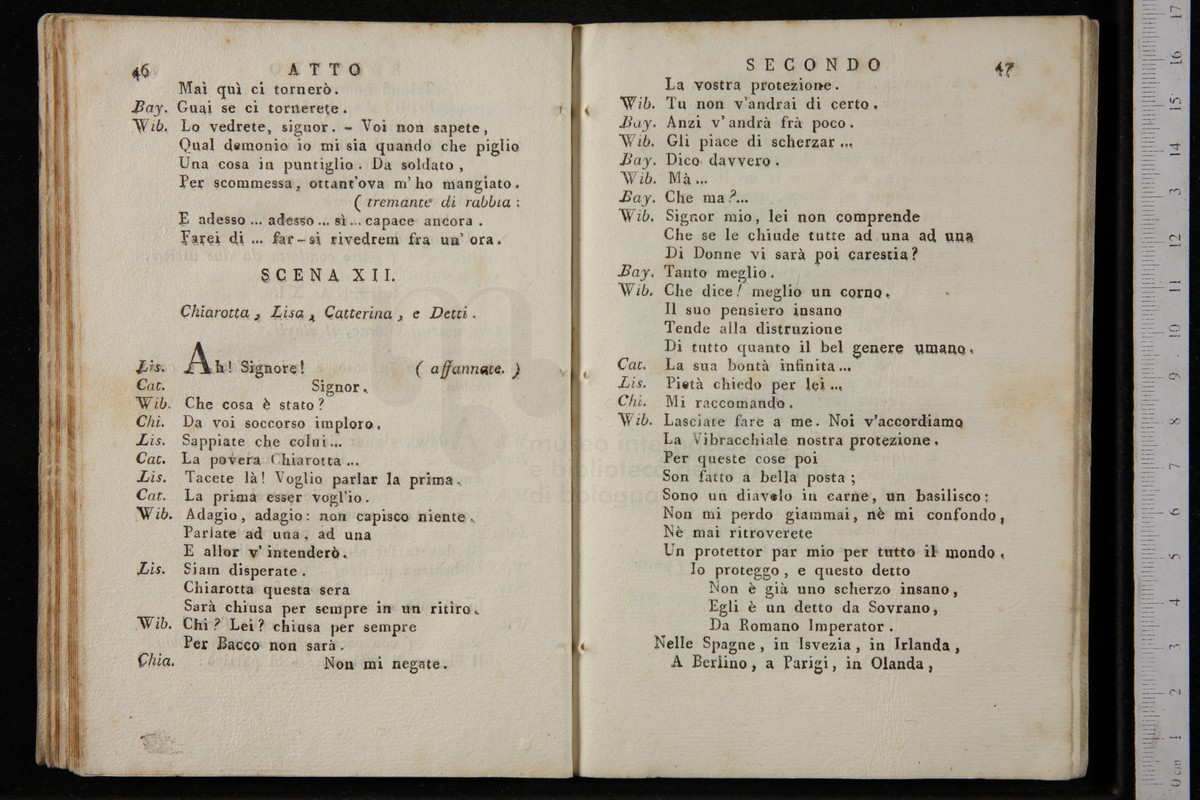 46 ATTO
Mai quì ci tornerò.
Bay. Guai se ci tornerete.
Wib. Lo vedrete, signor. - Voi non sapete,
Qual demonio io mi sia quando che piglio
Una cosa in puntiglio. Da soldato,
Per scommessa, ottant'ova m'ho mangiato.
( tremante di rabbia :
E adesso ... adesso ... sì ... capace ancora .
Farei di ... far-si rivedrem fra un' ora.
SCENA XII.
Chiarotta, Lisa, Catterina, e Detti.
Lis. Ah! Signore! ( affannate. )
Cat. Signor.
Wib. Che cosa è stato?
Chi. Da voi soccorso imploro.
Lis. Sappiate che colui...
Cat. La povera Chiarotta ...
Lis. Tacete là! Voglio parlar la prima.
Cat. La prima esser vogl'io.
Wib. Adagio, adagio: non capisco niente.
Parlate ad una, ad una
E allor v' intenderò.
Lis. Siam disperate.
Chiarotta questa sera
Sarà chiusa per sempre in un ritiro.
Wib. Chi? Lei? chiusa per sempre
Per Bacco non sarà.
Chia. Non mi negate.
SECONDO 47
La vostra protezione.
Wib. Tu non v'andrai di certo.
Bay. Anzi v'andrà frà poco.
Wib. Gli piace di scherzar ...
Bay. Dico davvero.
Wib. Mà...
Bay. Che ma?...
Wib. Signor mio, lei non comprende
Che se le chiude tutte ad una ad una
Di Donne vi sarà poi carestia?
Bay. Tanto meglio.
Wib. Che dice! meglio un corno.
Il suo pensiero insano
Tende alla distruzione
Di tutto quanto il bel genere umano.
Cat. La sua bontà infinita...
Lis. Pietà chiedo per lei ...
Chi. Mi raccomando.
Wib. Lasciate fare a me. Noi v'accordiamo
La Vibracchiale nostra protezione.
Per queste cose poi
Son fatto a bella posta;
Sono un diavolo in carne, un basilisco:
Non mi perdo giammai, nè mi confondo,
Nè mai ritroverete
Un protettor par mio per tutto il mondo.
Io proteggo, e questo detto
Non è già uno scherzo insano,
Egli è un detto da Sovrano,
Da Romano Imperator.
Nelle Spagne, in Isvezia, in Irlanda,
A Berlino, a Parigi, in Olanda,